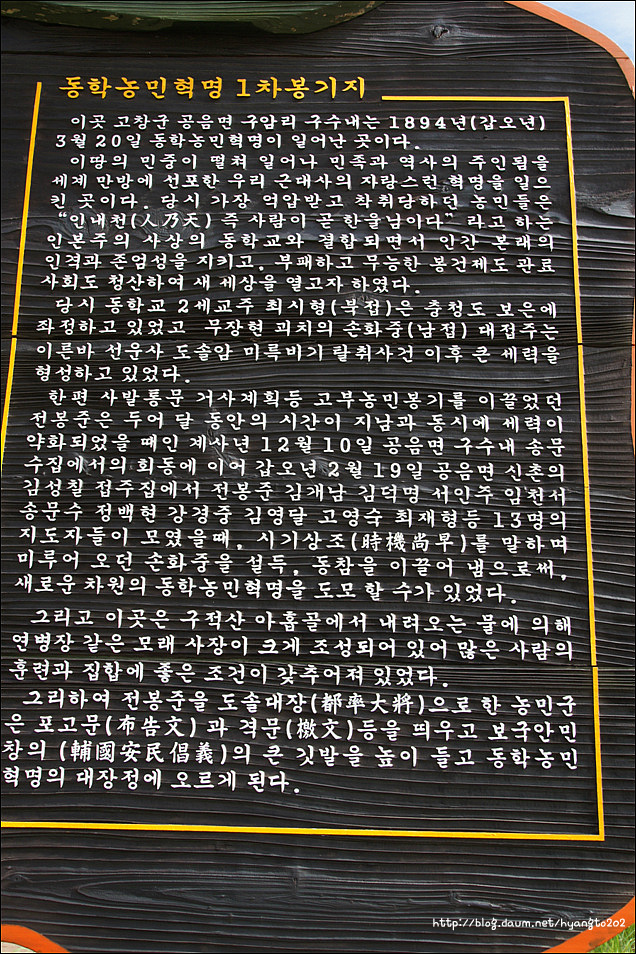 동학농민혁명 1차봉기지
이곳 고창군 공음면 구암리 구수내는 1894년(갑오년)
3월 20일 동학농민혁명이 일어난 곳이다.
이땅의 민중이 떨쳐 일어나 민족과 역사의 주인됨을
세계 만방에 선포한 우리 근대사의 자랑스런 혁명을 일으
킨 곳이다. 당시 가장 억압받고 착취당하던 농민들은
“인내천(人乃天) 즉 사람이 곧 한울님이다” 라고 하는
인본주의 사상의 동학교와 결합되면서 인간 본래의
인격과 존엄성을 지키고, 부패하고 무능한 봉건제도 관료
사회도 청산하여 새 세상을 열고자 하였다.
당시 동학교 2세교주 최시형(북접)은 충청도 보은에
좌정하고 있었고 무장현 괴치의 손화중(남접) 대접주는
이른바 선운사 도솔암 미륵비기 탈취사건 이후 큰 세력을
형성하고 있었다.
한편 사발통문 거사계획등 고부농민봉기를 이끌었던
전봉준은 두어 달 동안의 시간이 지남과 동시에 세력이
약화되었을 때인 계사년 12월 10일 공음면 구수내 송문
수집에서의 회동에 이어 갑오년 2월 19일 공음면 신촌의
김성칠 접주집에서 전봉준 김개남 김덕명 서인주 임천서
송문수 정백현 강경중 김영달 고영숙 최재형등 13명의
지도자들이 모였을때, 시기상조(時機尙早)를 말하며
미루어 오던 손화중을 설득, 동참을 이끌어 냄으로써,
새로운 차원의 동학농민혁명을 도모 할 수가 있었다.
그리고 이곳은 구적산 아홉골에서 내려오는 물에 의해
연병장 같은 모래 사장이 크게 조성되어 있어 많은 사람의
훈련과 집합에 좋은 조건이 갖추어져 있었다.
그리하여 전봉준을 도솔대장(都率大將)으로 한 농민군
은 포고문(布告文) 과 격문(檄文)등을 띄우고 보국안민
창의 (輔國安民倡義)의 큰 깃발을 높이 들고 동학농민
혁명의 대장정에 오르게 된다.
http://blog.daum.net/hyangto202